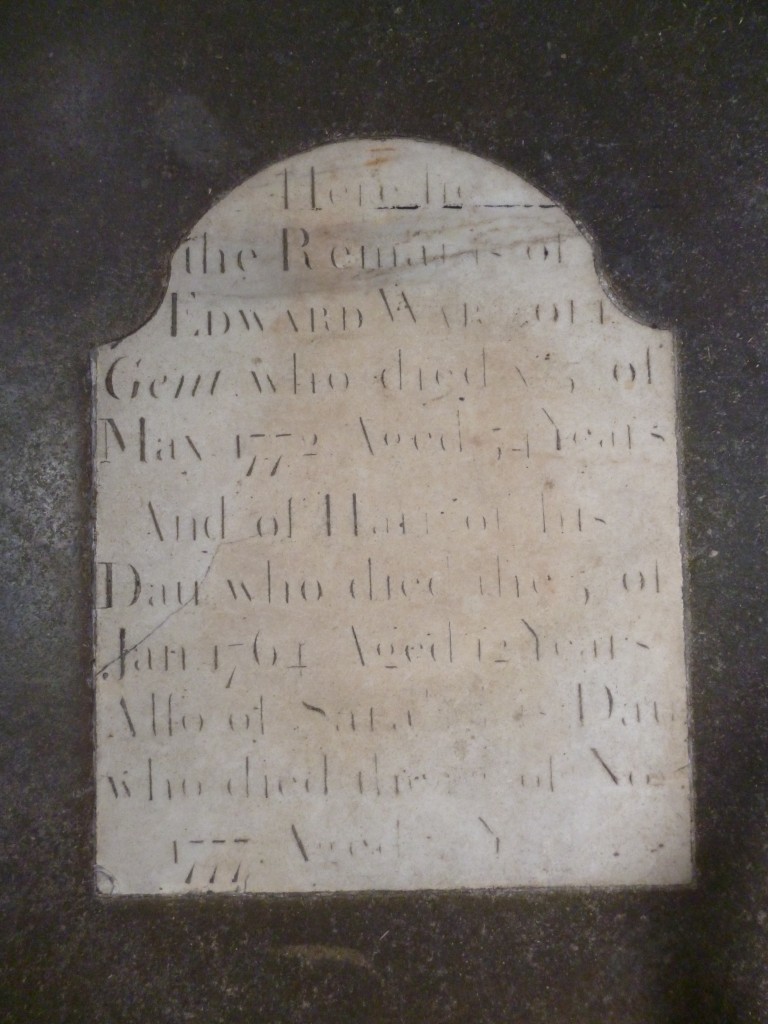 Here lie
the Remains of
EDWARD
Gent who died ye 5 of
May 1772 Aged 54 Years
And of Harriot his
Dau. who died the 5 of
Jan 1764 Aged 12 Years
Alſo of Sarah his Dau
who died the of Nov
1777 Aged Years